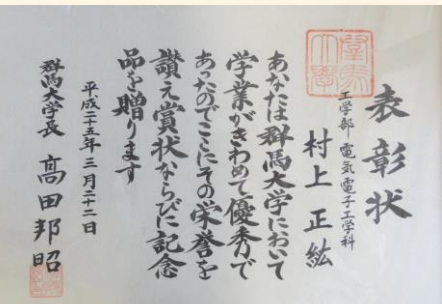 表彰状
工学部 電気電子工学科
村上 正紘
あなたは群馬大学において
学業がきわめて優秀で
あったのでここにその栄誉を
讃え賞状ならびに記念
品を贈ります
平成二十五年三月二十二日
群馬大学長 高田邦昭